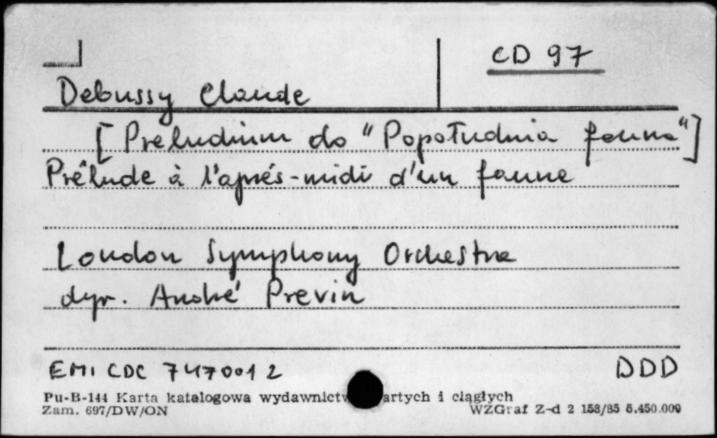 CD 97
Debussy Claude
[Preludium do "Popołudnia fauna"]
Prélude à l'aprés-midi d'un faune
London Symphony Orchestra
dyr. André Previn
EMI CDC 7470012 DDD
Pu-B-144 Karta katalogowa wydawnictw artych i ciągłych
Zam. 697/DW/ON WZGraf Z-d 2 158/85 5.450.000